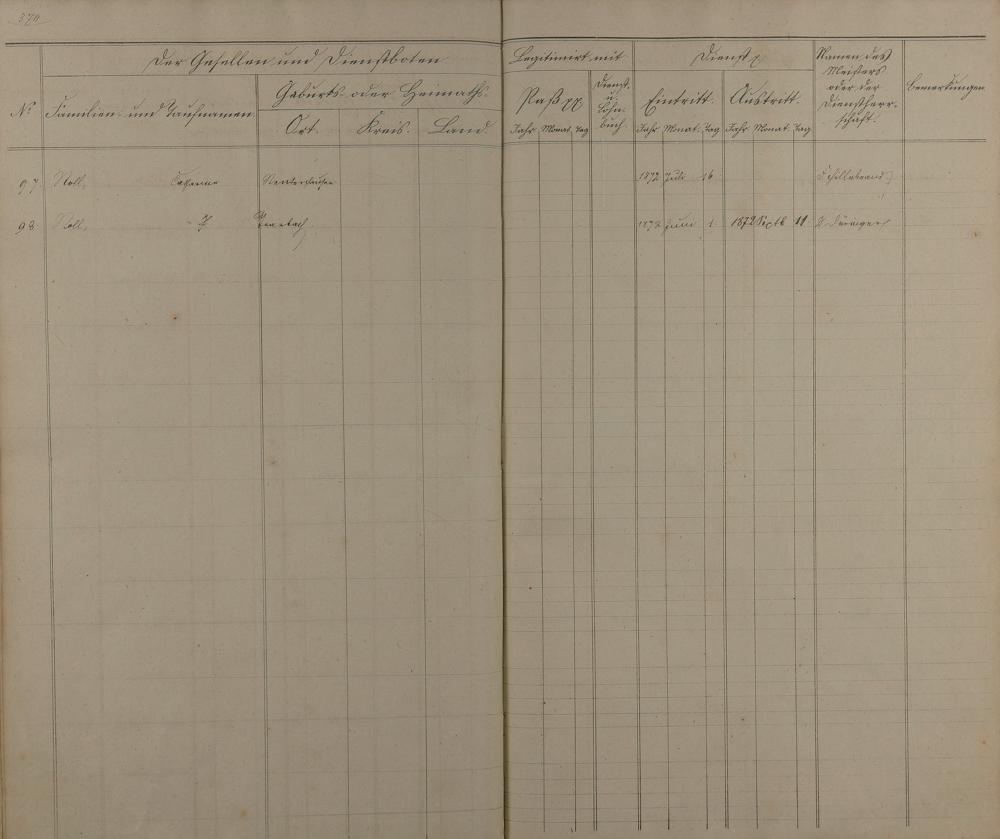 370
Der Gesellen und Dienstboten
Legitimirt mit
Dienst
Namen des
Meisters
oder der
Dienstherr-
schaft.
Bemerkungen
Geburts- oder Heimaths-
Paß pp
Dienst-
u.
Lohn-
buch
Eintritt.
Austritt.
No
Familien- und Taufnamen.
Ort.
Kreis.
Land.
Jahr Monat Tag
Jahr Monat. Tag
Jahr Monat. Tag
97. Noll, 1872 Juli 16
98. Noll, 1872 Juni 1. 1872 Septb 11